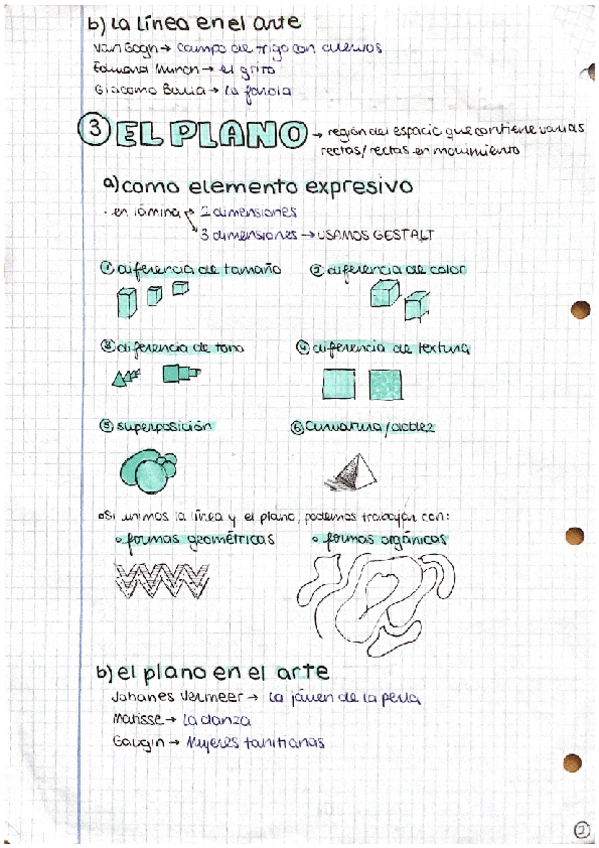 b) La línea en el arte
Van Gogh → campo de trigo con cuervos
Edvard Munch → el grito
Giacomo Balla → la
③ EL PLANO → región del espacio que contiene varias
rectas/rectas en movimiento
a) como elemento expresivo
· en lámina → 2 dimensiones
→ 3 dimensiones → USAMOS GESTALT
① diferencia de tamaño ② diferencia de color
③ diferencia de tono ④ diferencia de textura
⑤ superposición ⑥ curvatura/doblez
Si unimos la línea y el plano, podemos trabajar con:
formas geométricas formas orgánicas
b) el plano en el arte
Johanes Vermeer → La jóven de la perla
Matisse → La danza
Gaugin → Mujeres tahitianas
2